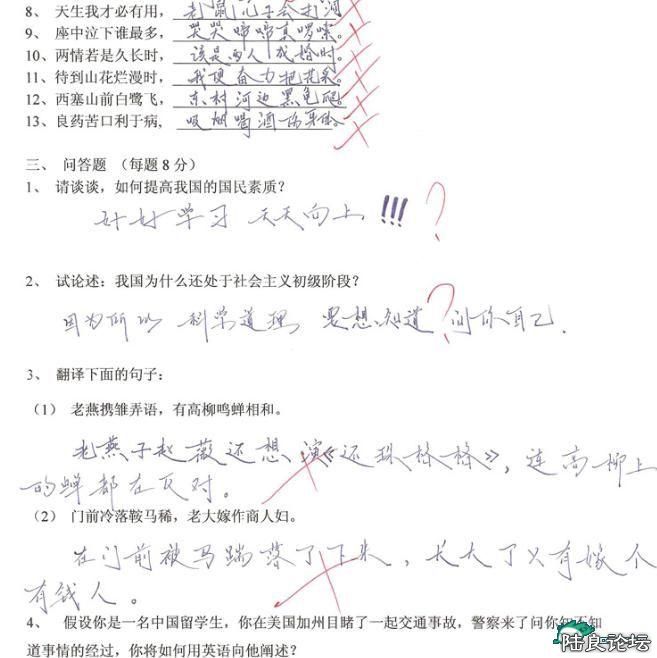 8、 天生我才必有用，老鼠儿子会打洞
9、 座中泣下谁最多，哭哭啼啼真啰嗦。
10、两情若是久长时，该是两人成婚时。
11、待到山花烂漫时，我便奋力把花采。
12、西塞山前白鹭飞，东村河边黑龟爬。
13、良药苦口利于病，吸烟喝酒伤身体。
三、 问答题 （每题 8 分）
1、 请谈谈，如何提高我国的国民素质？
好好学习 天天向上!!! ?
2、 试论述：我国为什么还处于社会主义初级阶段？
因为所以 科学道理 要想知道 ? 问你自己.
3、 翻译下面的句子：
（1） 老燕携雏弄语，有高柳鸣蝉相和。
老燕子赵薇还想演《还珠格格》，连高柳上
的蝉都在反对。
（2） 门前冷落鞍马稀，老大嫁作商人妇。
在门前被马踹落了下来，长大了又有嫁个
有钱人。
4、 假设你是一名中国留学生，你在美国加州目睹了一起交通事故，警察来了问你知不知
道事情的经过，你将如何用英语向他阐述？
陆良论坛